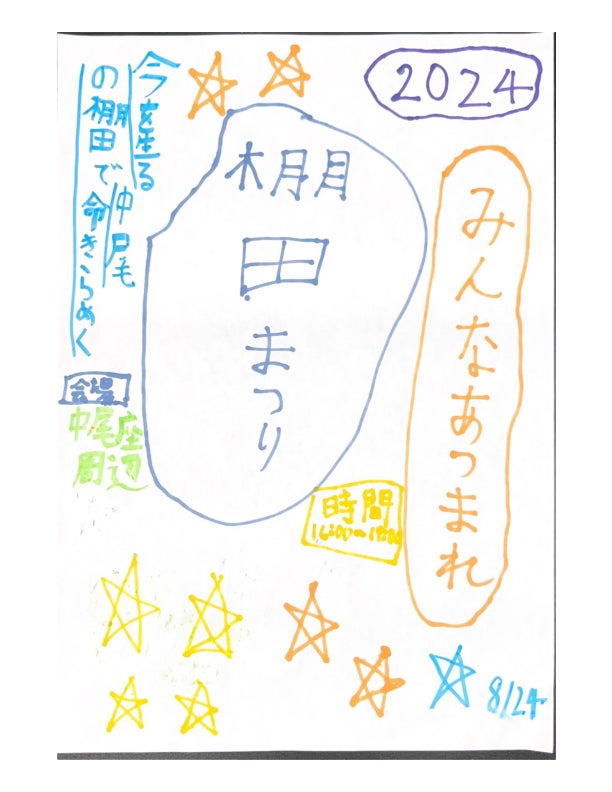 2024
みんなあつまれ
棚田まつり
今産る仲尾
の棚田で命きらめく
会場
中尾座
周辺
時間
16:00〜
8/24